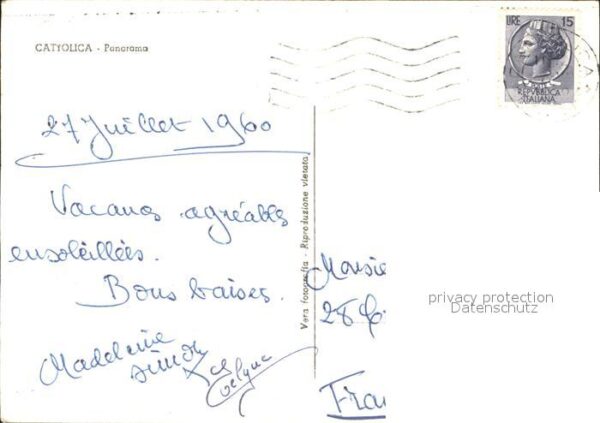 CATTOLICA - Panorama
LIRE 15
REPVBBLICA
ITALIANA
27 Juillet 1960
Vacances agréables
ensoleillées.
Bons baisers.
Madeleine
Simon
Evelyne
Vera fotografia - Riproduzione vietata
Monsie
28
Fran
privacy protection
Datenschutz